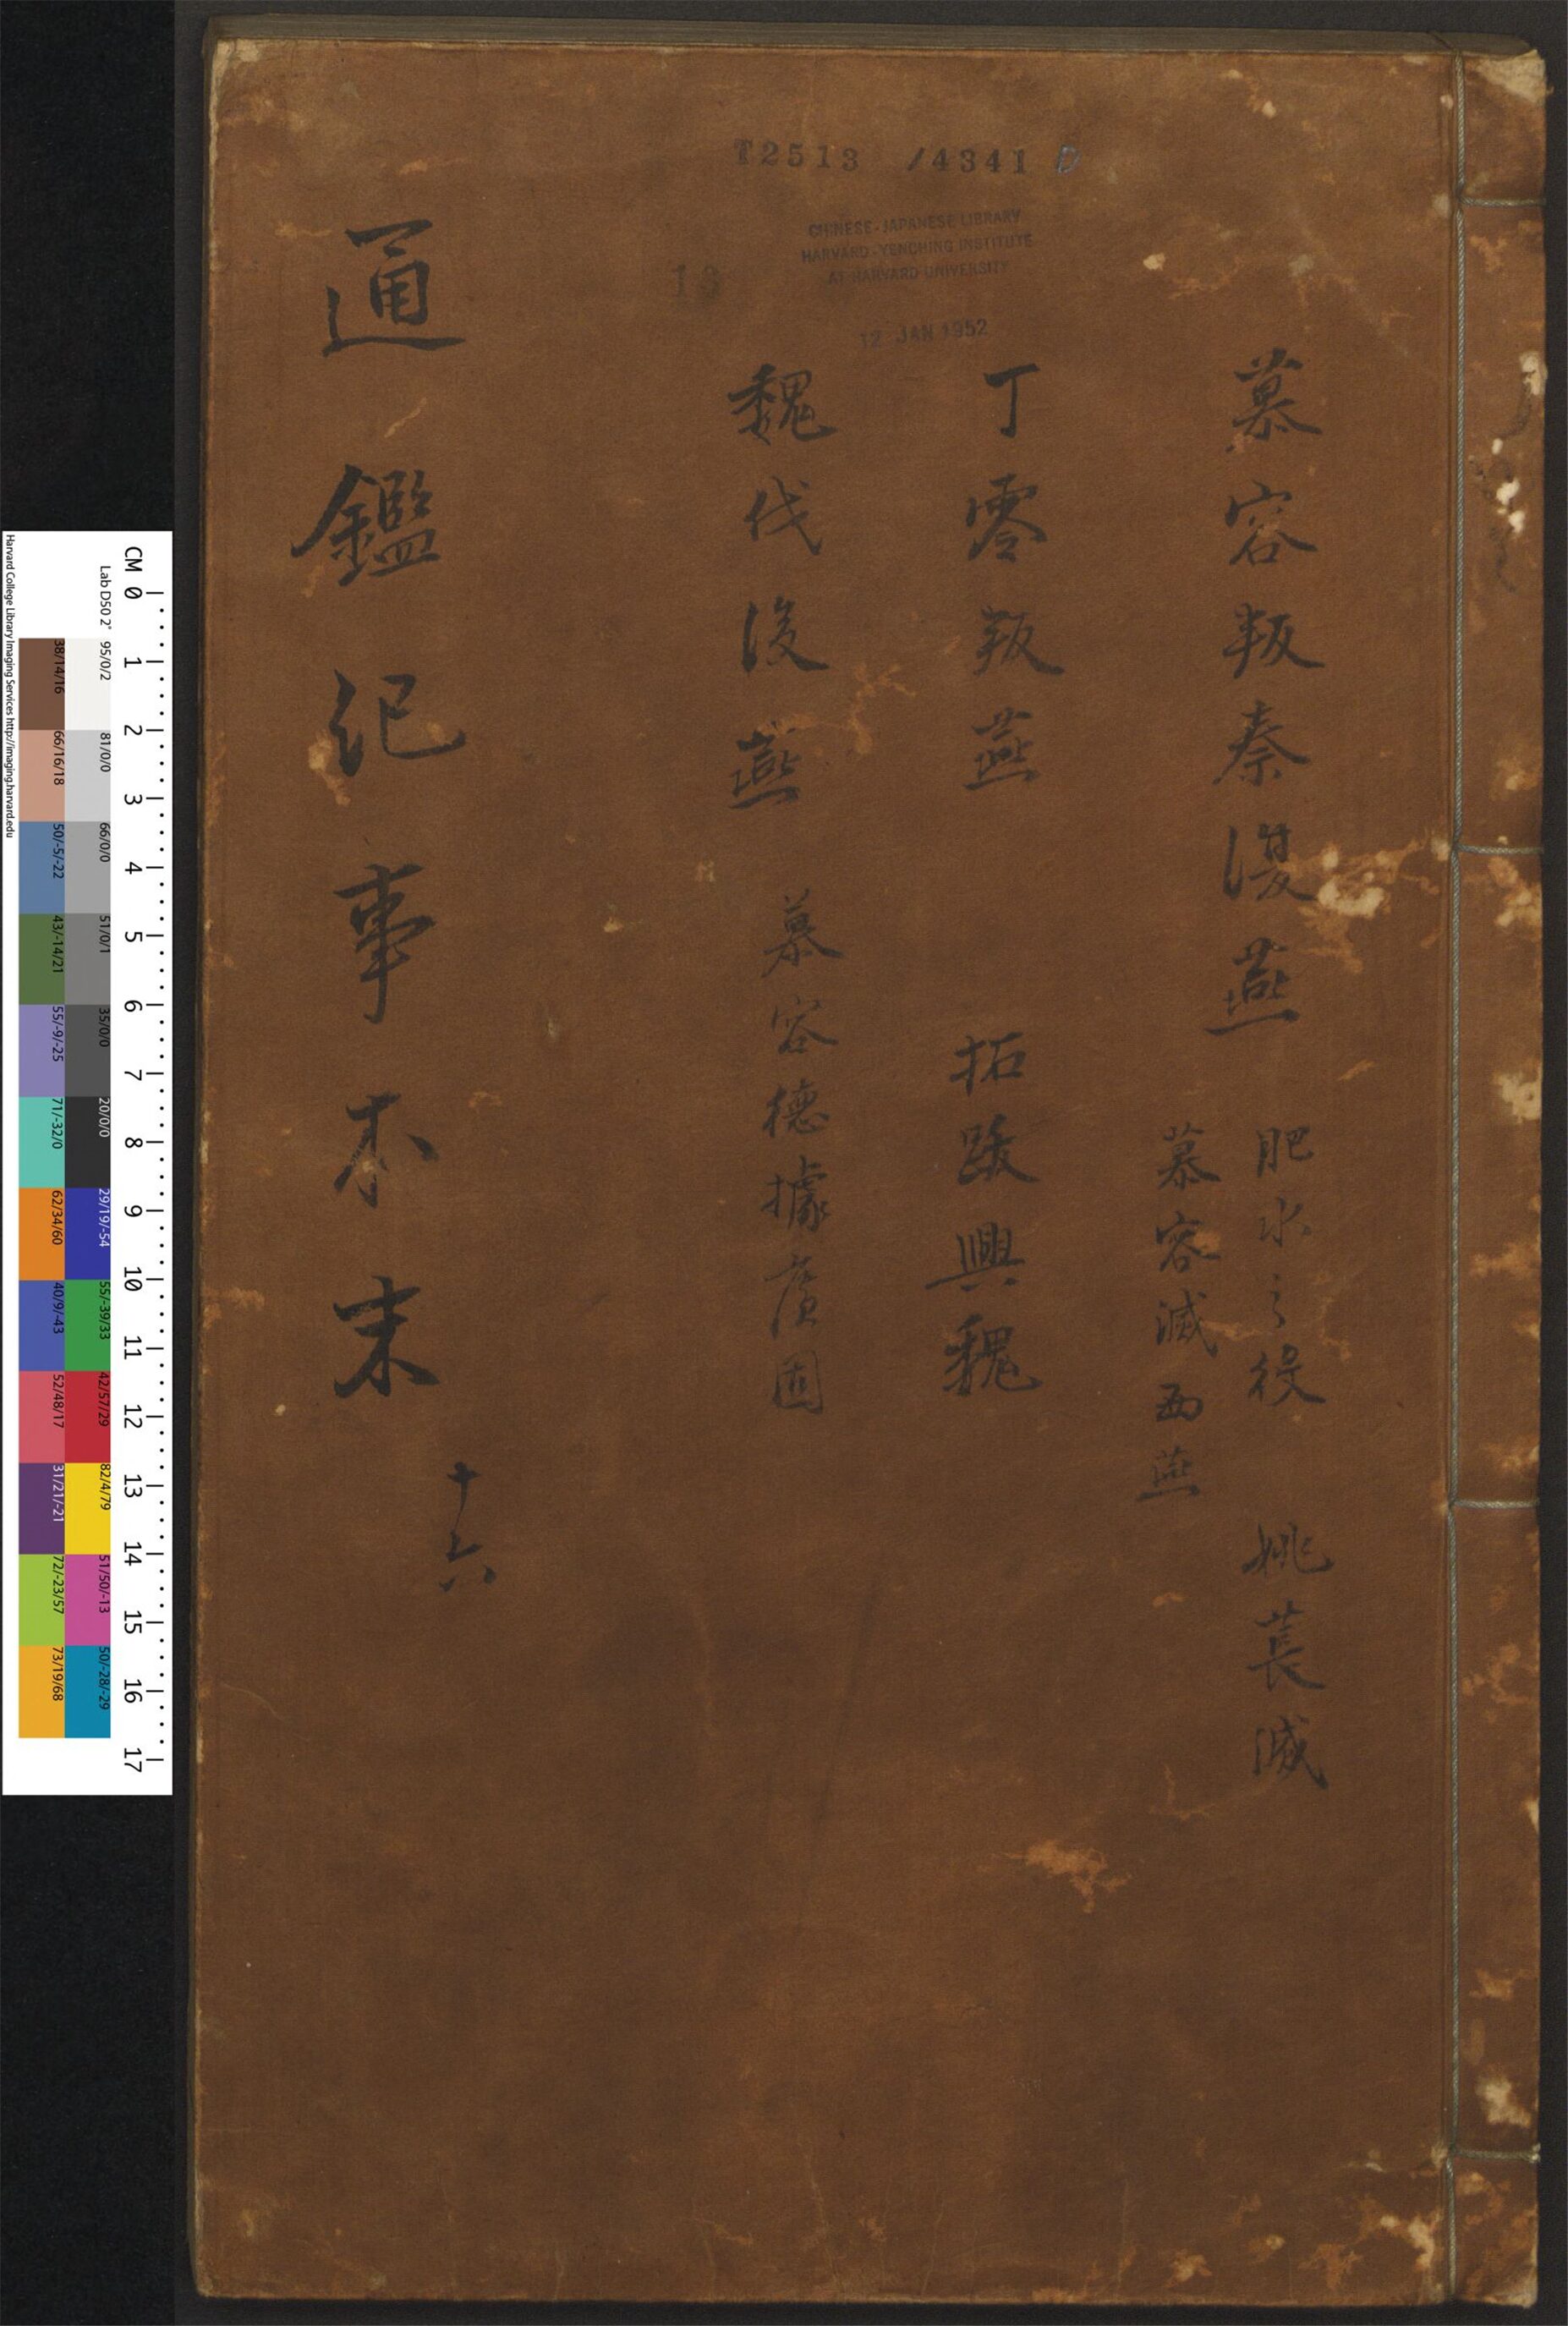 T2513 /4341 D
CHINESE-JAPANESE LIBRARY
HARVARD-YENCHING INSTITUTE
AT HARVARD UNIVERSITY
12 JAN 1952
慕容叛秦復燕
肥水之役
慕容滅西燕
姚萇滅
丁零叛燕
拓跋興魏
魏伐後燕
慕容德據廣固
通鑑紀事本末
十六
CM 0 1 2 3 4 5 6 7 8 9 10 11 12 13 14 15 16 17
Lab D50 2°
95/0/2 81/0/0 66/0/0 51/0/1 35/0/0 20/0/0 29/19/-54 55/-39/33 42/57/29 82/4/79 51/50/-13 50/-28/-29
38/14/16 66/16/18 50/-5/-22 43/-14/21 55/-9/-25 71/-32/0 62/34/60 40/9/-43 52/48/17 31/21/-21 72/-23/57 73/19/68
Harvard College Library Imaging Services http://imaging.harvard.edu